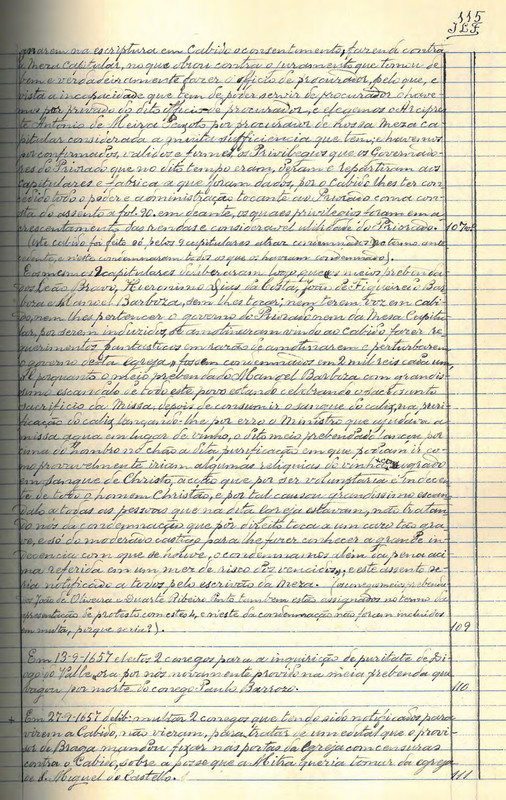 115
J.L.F.
gnarem na escriptura em Cabido o consentimento, fazendo contra
a Meza Capitular, no que obrou contra o juramento que tomou de
bem e verdadeiramente fazer o officio de procurador, pelo que, e
vista a incapacidade que tem de poder servir de procurador o have-
mos por privado do dito officio de procurador, e elegemos o Arcipres-
te Antonio de Meira Peixoto por procurador de nossa meza ca-
pitular considerada a muita sufficiencia que tem; e havemos
por confirmados, validos e firmes, os Privilegios que os Governado-
res do Priorado que no dito tempo eram, deram e repartiram aos
capitulares e fabrica a que foram dados, por o Cabido lhes ter con-
cedido todo o poder e administração tocante ao Priorado como con-
sta do assento a fol. 90. em deante, os quaes privilegios foram em a-
crescentamento das rendas e consideravel utilidade do Priorado. 107
(este cabido foi feito só pelos 2 capitulares atraz condemnados no termo ante-
cedente, e neste condemnaram todos os que os haviam condemnado).
E os mesmos 2 capitulares deliberaram hoje que os meios prebenda-
dos Leão Bravo, Hieronimo Dias da Costa, João de Figueirêdo Bar-
boza e Manoel Barboza, sem lhes tocar, nem terem voz em cabi-
do, nem lhes pertencer o governo do Priorado nem da Meza Capitu-
lar, por serem induzidos, se amotinaram vindo ao Cabido, fazer re-
querimentos fantasticos em razão de amotinarem e perturbarem
o governo desta egreja, fossem condemnados em 2 mil reis cada um,
E porquanto o meio prebendado Manoel Barboza com grandis-
simo escandalo de todo este povo estando celebrando o Sacrosanto
sacrificio da Missa, depois de consumir o sangue do caliz, na puri-
ficação do caliz lançando-lhe por erro o Ministro que ajudava a
missa agua em lugar de vinho, o dito meio prebendado lançou por
cima do hombro no chão a dita purificação em que podiam ir co-
mo provavelmente iriam algumas reliquias do vinho consagrado
em sangue de Christo, acção que por ser voluntaria é indecen-
te de todo o homem Christão, e por tal causou grandissimo escan-
dalo a todas as pessoas que na dita egreja estavam, não tratan-
do nós da condemnação que por direito toca a um caso tão gra-
ve, e só do moderado castigo para lhe fazer conhecer a grande in-
decencia com que se houve, o condemnamos além da pena aci-
ma referida em um mez de risco dos vencidos, e este assento se-
ria notificado a todos pelo escrivão da Meza. (os conegos meios prebenda-
dos João de Oliveira e Duarte Ribeiro Porto tambem estão assignados no termo da
apresentação de protesto com estes 4, e neste da condemnação não foram incluidos
em multa, porque seria?). 109
Em 13-9-1657 eleitos 2 conegos para a inquirição de puritate de Di-
ogo do Valle, ora por nós novamente provido na meia prebenda que
vagou por morte do conego Paulo Barrozo. 110
* Em 27-9-1657 delib: multar 2 conegos que tendo sido notificados para
virem a Cabido, não vieram, para tratar de um edital que o provi-
sor de Braga mandou fixar nas portas da egreja com censuras
contra o Cabido, sobre a posse que a Mitra queria tomar da egreja
de S. Miguel do Castello. 111